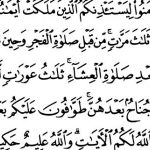 مَنُوا۟ لِيَسْتَـْٔذِنكُمُ ٱلَّذِينَ مَلَكَتْ أَيْمَـٰنُ
ثَلَـٰثَ مَرَّٰتٍ ۚ مِّن قَبْلِ صَلَوٰةِ ٱلْفَجْرِ وَحِينَ
عْدِ صَلَوٰةِ ٱلْعِشَآءِ ۚ ثَلَـٰثُ عَوْرَٰتٍ
جُنَاحٌۢ بَعْدَهُنَّ ۚ طَوَّٰفُونَ عَلَيْكُم بَعْ
ٱللَّهُ لَكُمُ ٱلْـَٔايَـٰتِ ۗ وَٱللَّهُ عَلِيمٌ حَكِي